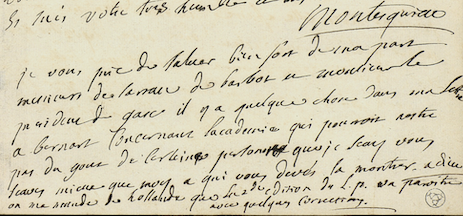 Je suis votre tres humble et
Montesquieu
je vous prie de saluer bien fort de ma part
messieurs de larrale de barbot et monsieur le
president de gasc il y a quelque chose dans ma lettre
a bernart concernant lacademie qui pouroit nestre
pas du gout de certeines personnes que je scay vous
scaves mieux que moy a qui vous deves la montrer. adieu
on ma mandé de hollande que la 2de edition du L.P. va paroitre
avec quelques corrections.